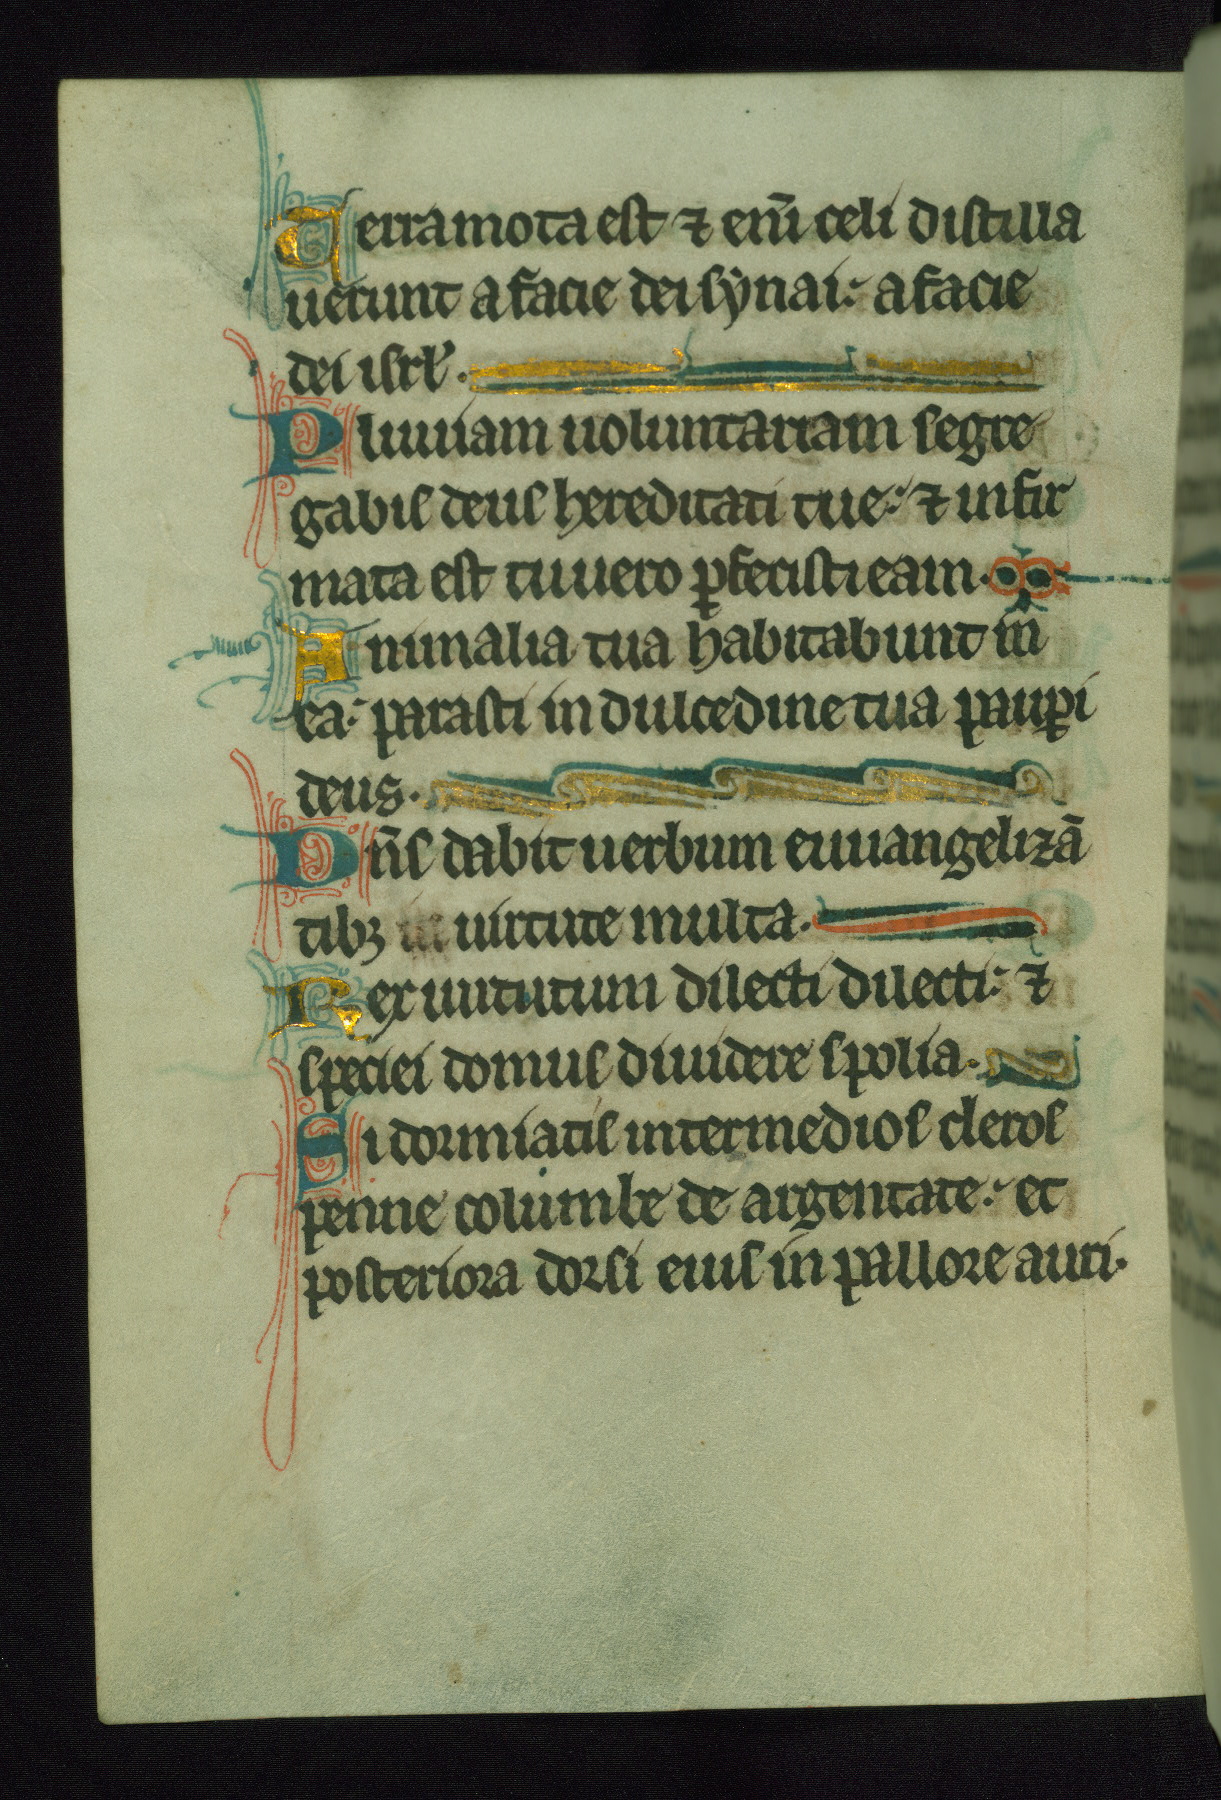 Terra mota est ⁊ enī celi distilla
uerunt a facie dei sẏnai: a facie
dei isrl̓.
Pluuiam uoluntariam segre
gabis deus hereditati tue: ⁊ infir
mata est tu uero ꝑfecisti eam.
Animalia tua habitabunt in
ea: parasti in dulcedine tua pauꝑi
deus.
Dn̄s dabit uerbum euuangelizā
tibꝫ in uirtute multa.
Rex uirtutum dilecti dilecti: ⁊
speciei domus diuidere spolia.
Si dormiatis inter medios cleros
penne columbe de argentate: et
posteriora dorsi eius in pallore auri.